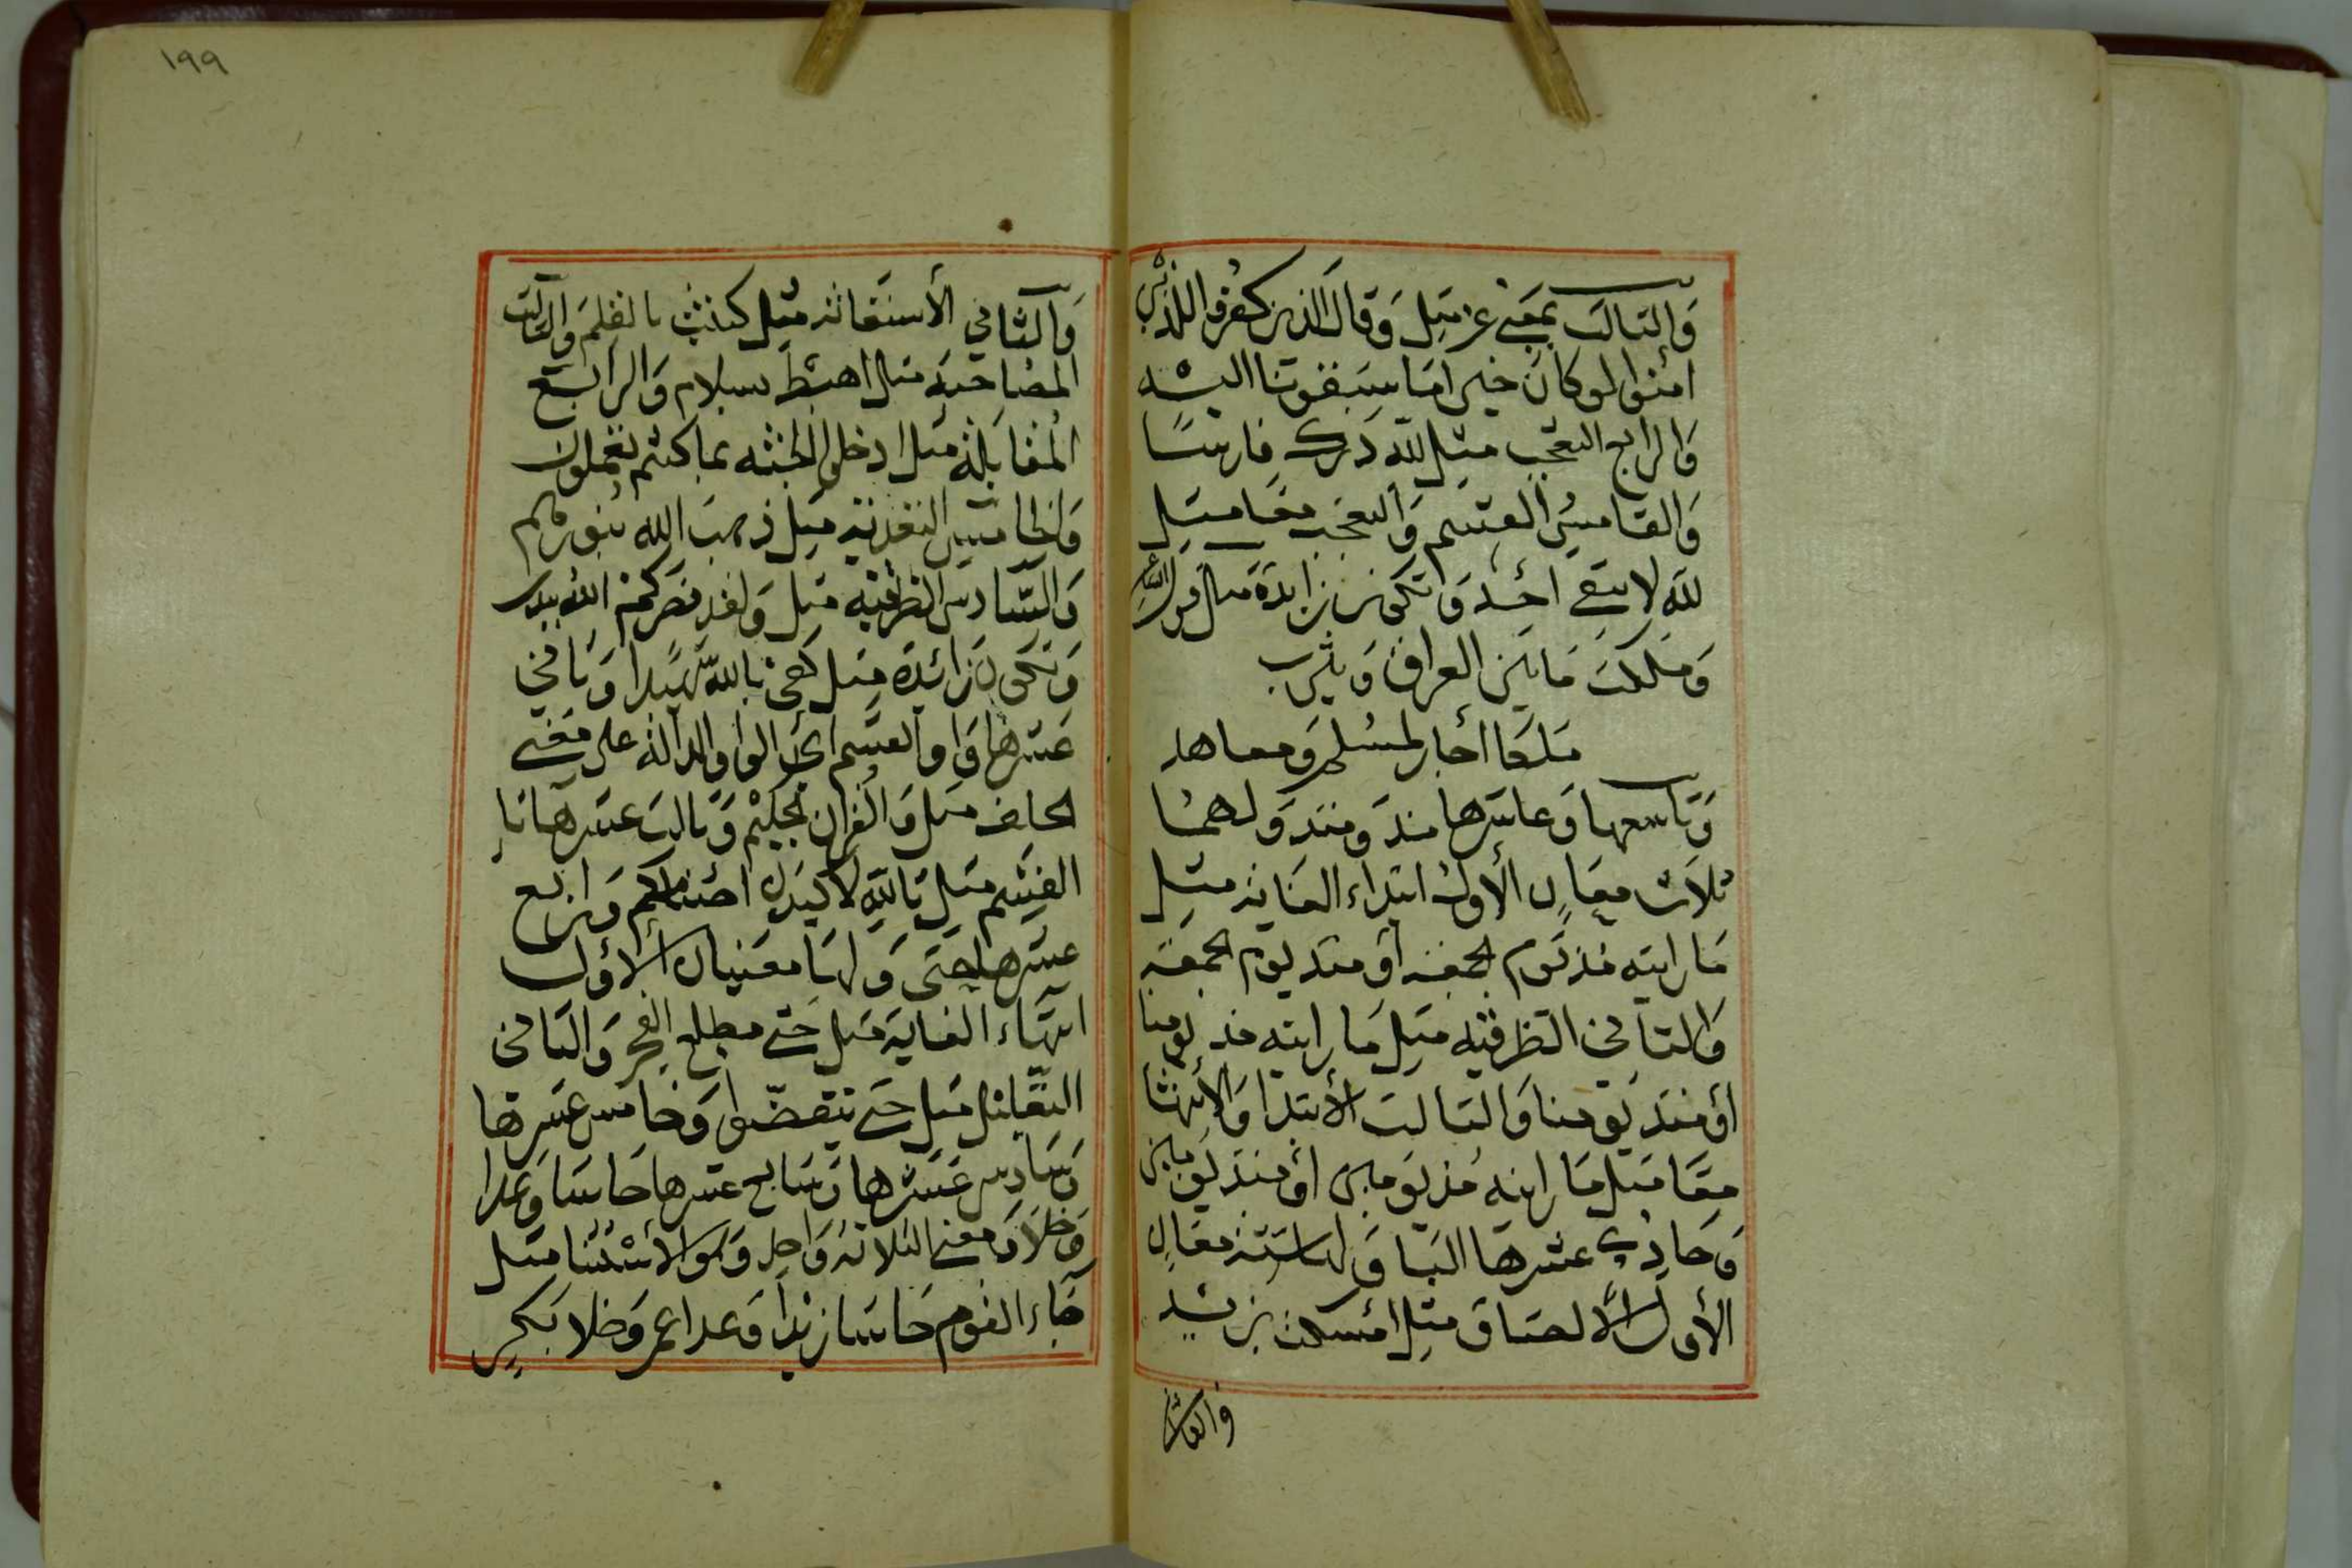 والثالث بمعنى عن مثل وقال الذين كفروا للذين
امنوا لو كان خيرا ما سبقونا اليه
والرابع التعجب مثل لله درك فارسا
والخامس القسم والتعجب معا مثل
لله لا يبقى احد وتكون زايدة مثل قول الشاعر
وملكت ما بين العراق ويثرب
ملكا اجار لمسلم ومعاهد
وتاسعها وعاشرها مذ ومنذ ولهما
ثلاث معان الأول ابتداء الغاية مثل
ما رايته مذ يوم الجمعة أو منذ يوم الجمعة
والثاني الظرفية مثل ما رايته مذ يومنا
أو منذ يومنا والثالث الأبتدا والأنتها
معا مثل ما رايته مذ يومين أو منذ يومين
وحادي عشرها البا ولها ستة معان
الأول الألصاق مثل أمسكت بزيد
والثاني
١٩٩
والثاني الأستعانة مثل كتبت بالقلم والثالث
المصاحبة مثل اهبط بسلام والرابع
المقابلة مثل ادخلوا الجنة بما كنتم تعملون
والخامس التعدية مثل ذهب الله بنورهم
والسادس الظرفية مثل ولقد نصركم الله ببدر
وتكون زائدة مثل كفى بالله شهيدا وثاني
عشرها واو القسم أي الواو الدالة على معنى
الحلف مثل والقران الحكيم وثالث عشرها تا
القسم مثل تالله لاكيدن أصنامكم ورابع
عشرها حتى ولها معنيان الأول
انتهاء الغاية مثل حتى مطلع الفجر والثاني
التعليل مثل حتى ينفضوا وخامس عشرها
وسادس عشرها وسابع عشرها حاشا وعدا
وخلا ومعنى الثلاثة واحد وهو الأستثنا مثل
جاء القوم حاشا زيدا وعدا عمر وخلا بكر